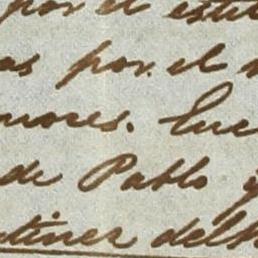 por el esti
as por el
nores. Luc
de Pablo y
tiner del